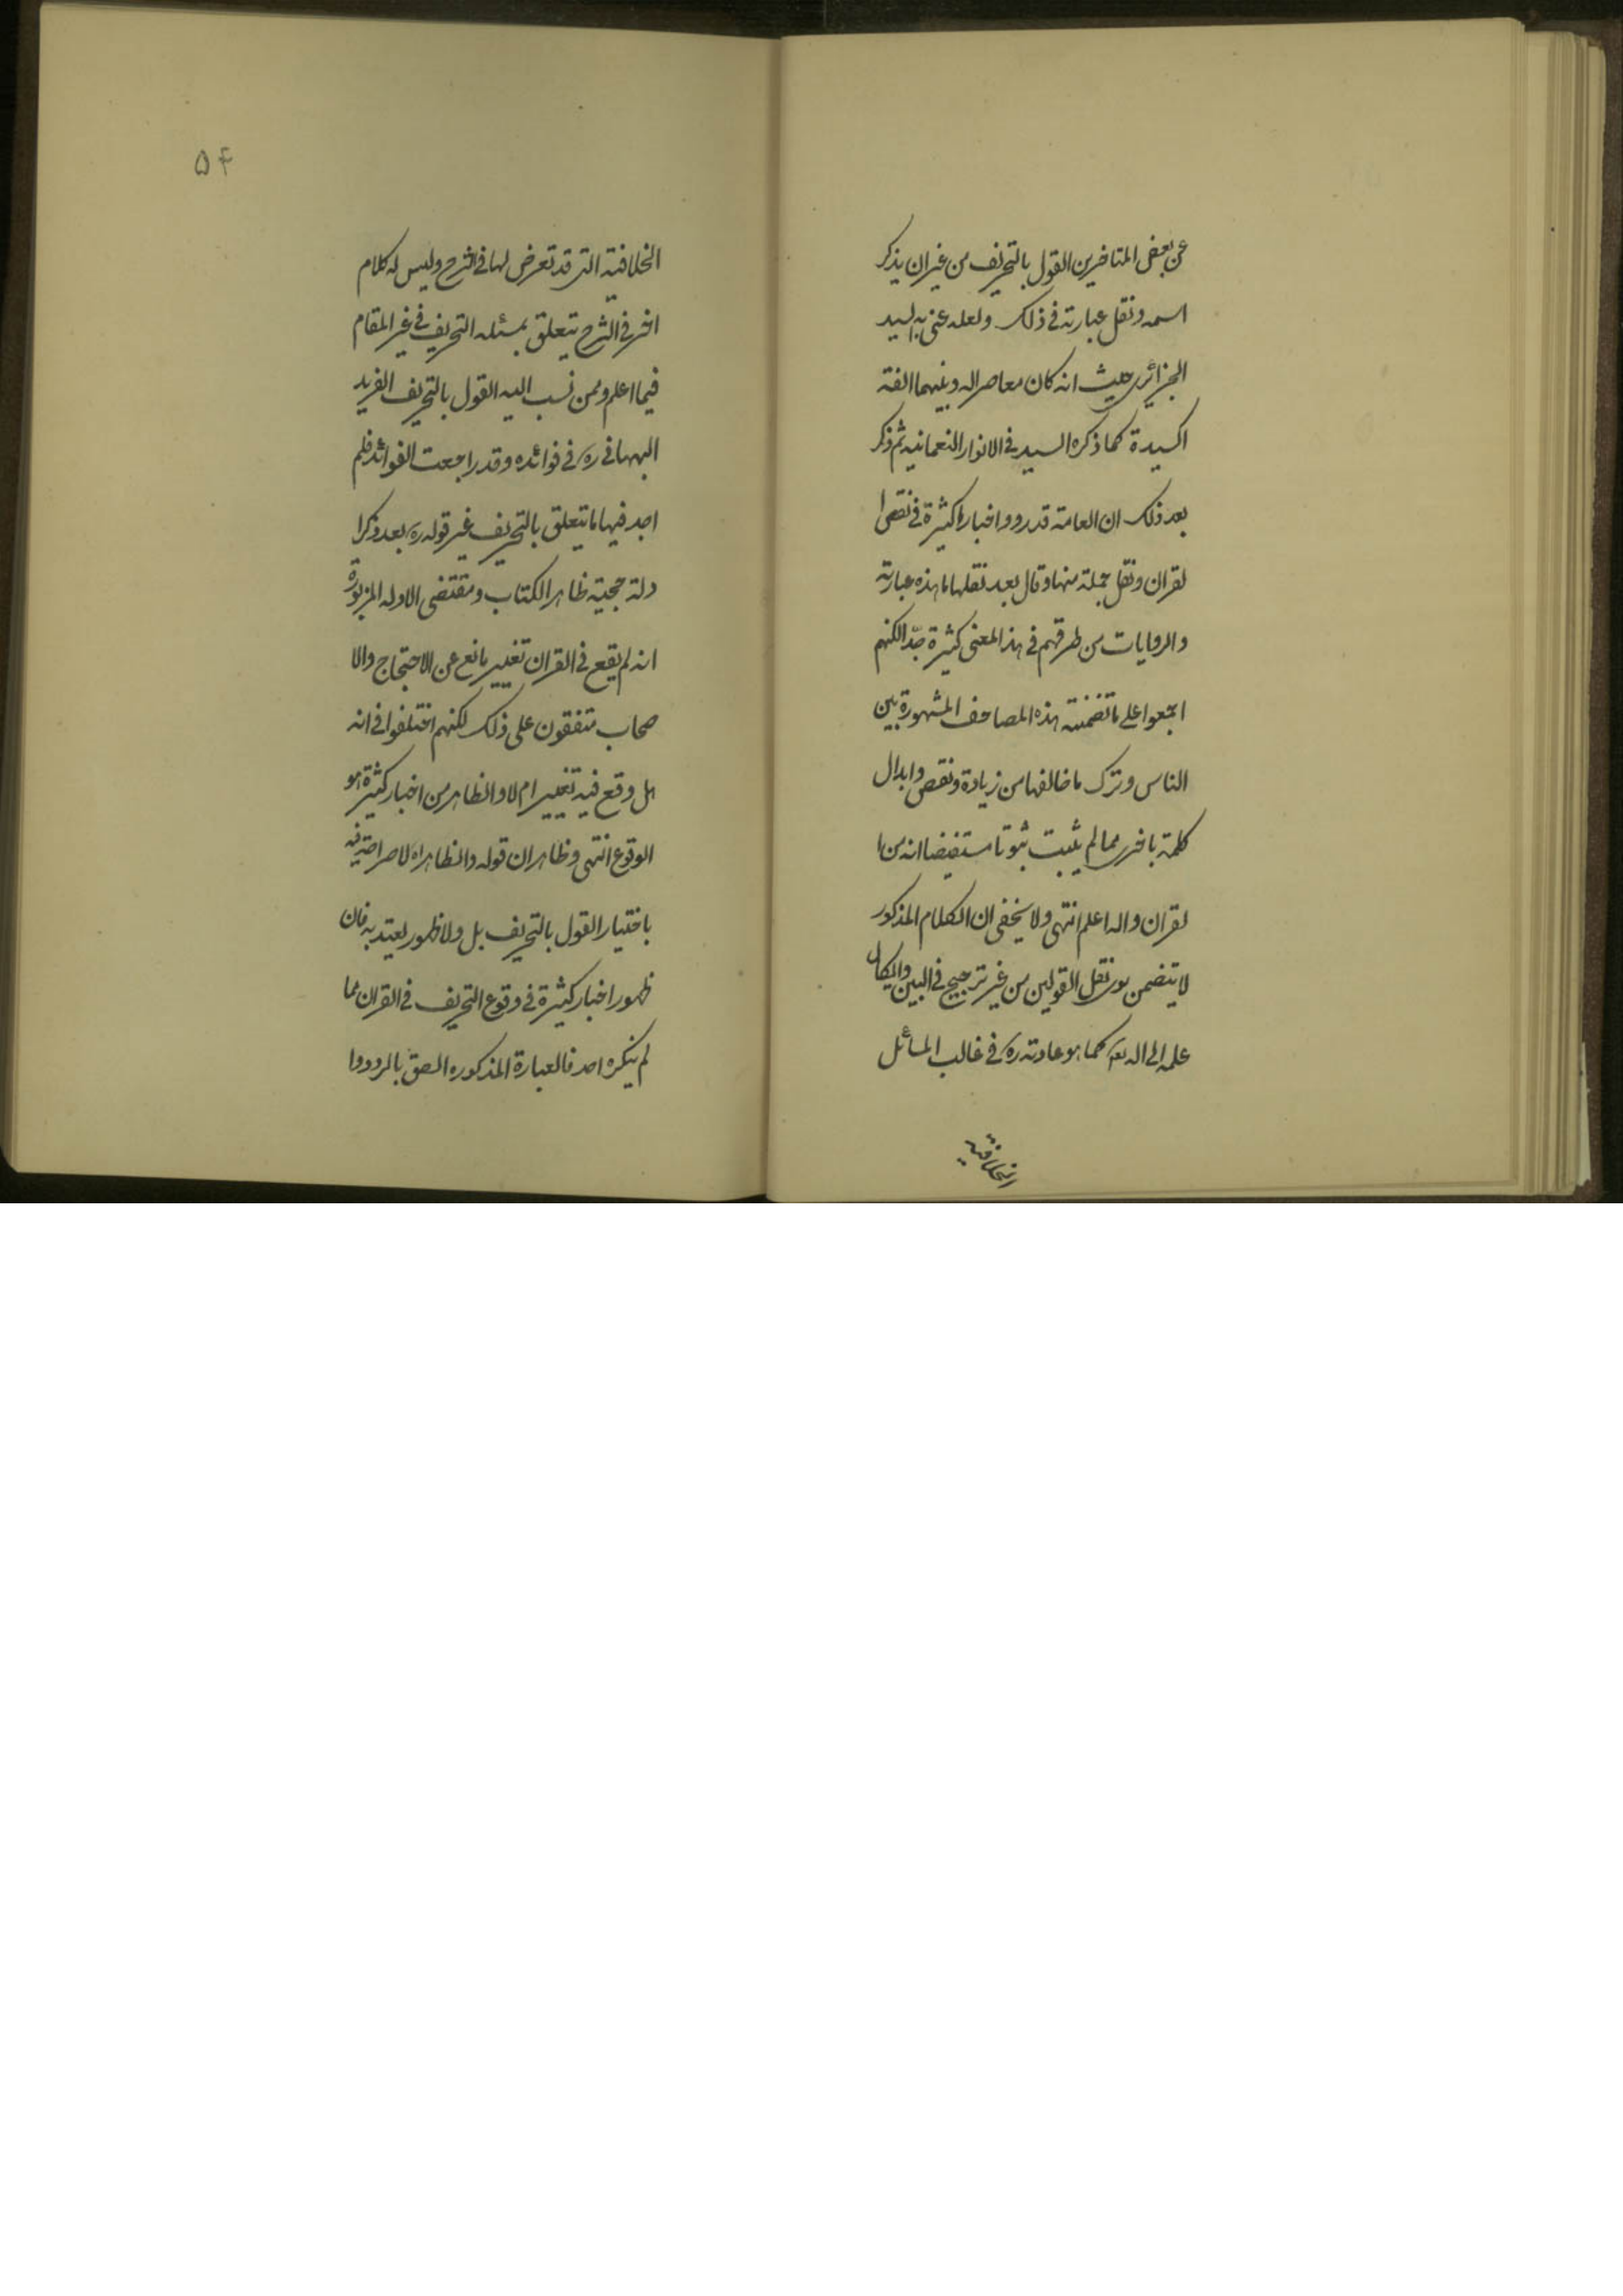 عن بعض المتاخرين القول بالتحريف من غير ان يذكر
اسمه و نقل عبارته في ذلك و لعله عنى به السيد
الجزائري حيث انه كان معاصرا له و بينهما الفة
اكيدة كما ذكره السيد في الانوار النعمانيه ثم ذكر
بعد ذلك ان العامة قد رووا اخبارا كثيرة في نقص ا
لقران و نقل جملة منها و قال بعد نقلها ما هذه عبارته
و الروايات من طرقهم في هذا المعنى كثيرة جدّا لكنهم
اجمعوا على ما تضمنته هذه المصاحف المشهورة بين
الناس و ترك ما خالفها من زيادة و نقص و ابدال
كلمة باخرى مما لم يثبت ثبوتا مستفيضا انه من ا
لقران و الله اعلم انتهى و لا يخفى ان الكلام المذكور
لا يتضمن سوى نقل القولين من غير ترجيح في البين و ايكال
علمه الى الله تعـ كما هو عادته ره في غالب المسائل
الخلافية
۵۴
الخلافية التي قد تعرض لها في الشرح و ليس له كلام
اخر في الشرح يتعلق بمسئله التحريف في غير المقام
فيما اعلم و ممن نسب اليه القول بالتحريف الفريد
البهبهاني ره في فوائده و قد راجعت الفوائد فلم
اجد فيها ما يتعلق بالتحريف غير قوله ره بعد ذكر ا
دلة حجية ظاهر الكتاب و مقتضى الادله المزبورة
انه لم يقع في القران تغيير مانع عن الاحتجاج و الا
صحاب متفقون على ذلك لكنهم اختلفوا في انه
هل وقع فيه تغيير ام لا و الظاهر من اخبار كثيرة هو
الوقوع انتهى و ظاهر ان قوله و الظاهر اه لا صراحة فيه
باختيار القول بالتحريف بل و لا ظهور يعتد به فان
ظهور اخبار كثيرة في وقوع التحريف في القران مما
لم ينكره احد فالعبارة المذكوره الصق بالرد و ا